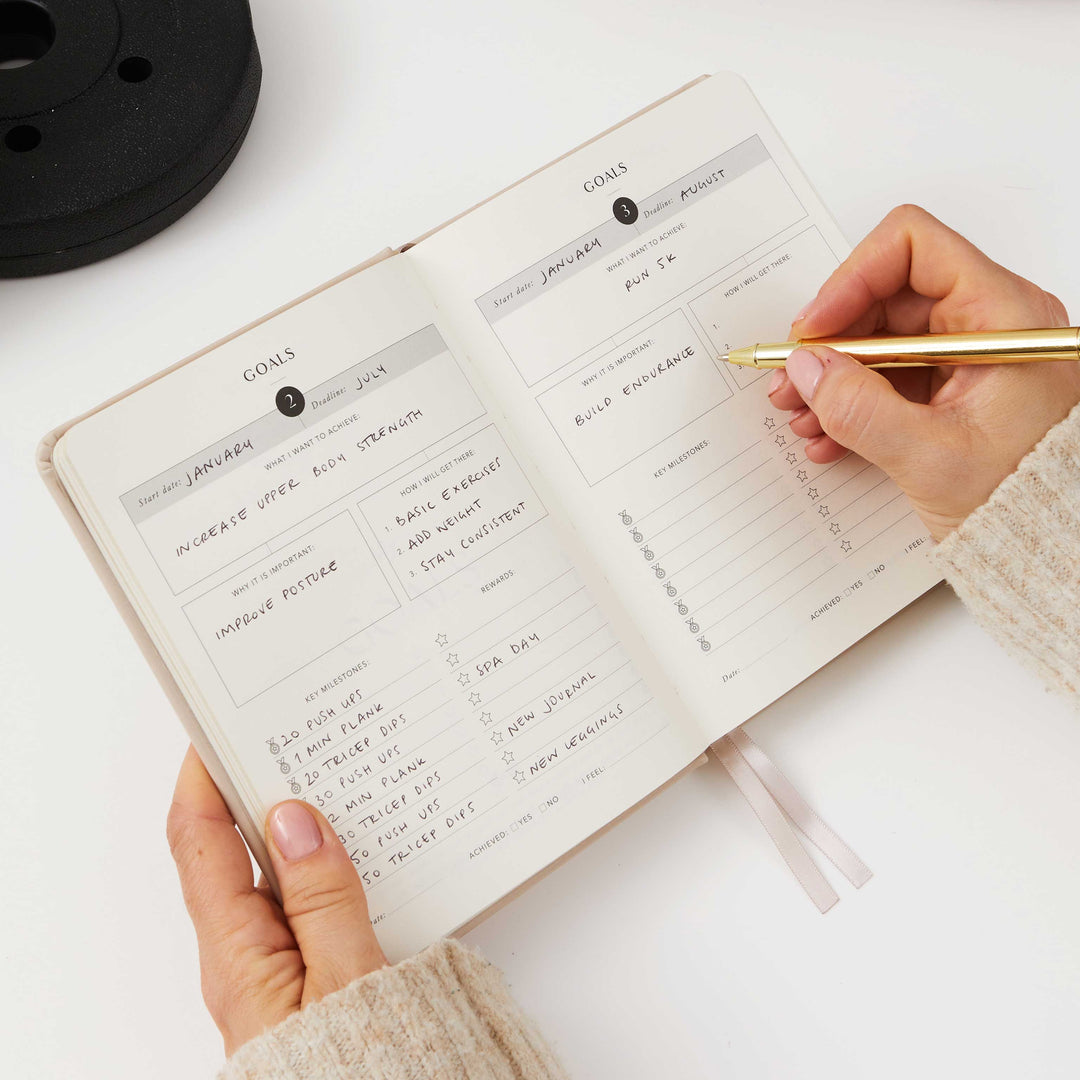 GOALS
2
Start date: JANUARY
Deadline: JULY
WHAT I WANT TO ACHIEVE:
INCREASE UPPER BODY STRENGTH
WHY IT IS IMPORTANT:
IMPROVE POSTURE
HOW I WILL GET THERE:
1. BASIC EXERCISES
2. ADD WEIGHT
3. STAY CONSISTENT
KEY MILESTONES:
20 PUSH UPS
1 MIN PLANK
20 TRICEP DIPS
30 PUSH UPS
2 MIN PLANK
30 TRICEP DIPS
50 PUSH UPS
50 TRICEP DIPS
REWARDS:
SPA DAY
NEW JOURNAL
NEW LEGGINGS
Date:
ACHIEVED: YES NO
I FEEL:
GOALS
3
Start date: JANUARY
Deadline: AUGUST
WHAT I WANT TO ACHIEVE:
RUN 5K
WHY IT IS IMPORTANT:
BUILD ENDURANCE
HOW I WILL GET THERE:
1.
2.
3.
KEY MILESTONES:
Date:
ACHIEVED: YES NO
I FEEL: